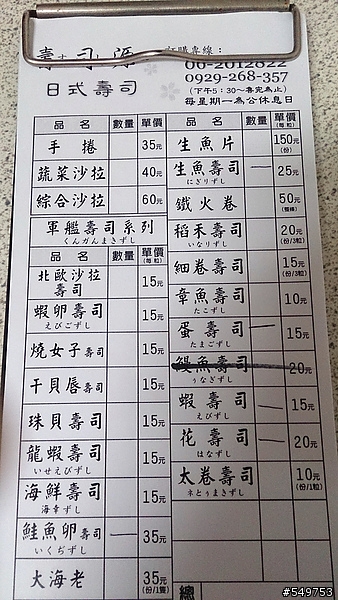 壽司源
訂購專線：
06-2012822
0929-268-357
日式壽司
(下午5：30～售完為止)
每星期一為公休息日
品名 數量 單價
手捲 35元
蔬菜沙拉 40元
綜合沙拉 60元
軍艦壽司系列
くんかんまきずし
品名 數量 單價(每粒)
北歐沙拉壽司 15元
蝦卵壽司 15元
えびごずし
燒女子壽司 15元
干貝唇壽司 15元
珠貝壽司 15元
龍蝦壽司 15元
いせえびずし
海鮮壽司 15元
海幸ずし
鮭魚卵壽司 35元
いくぢずし
大海老 35元(份/1隻)
品名 數量 單價(每粒)
生魚片 150元(份)
生魚壽司 25元
にぎりずし
鐵火卷 50元
稻禾壽司 20元(份/3粒)
いなりずし
細卷壽司 15元(份/3粒)
章魚壽司 10元
たこずし
蛋壽司 15元
たまごずし
鰻魚壽司 20元
うなぎずし
蝦壽司 15元
えびずし
花壽司 20元
はなずし
太卷壽司 10元(份/1粒)
ネとぅまきずし
總
#549753